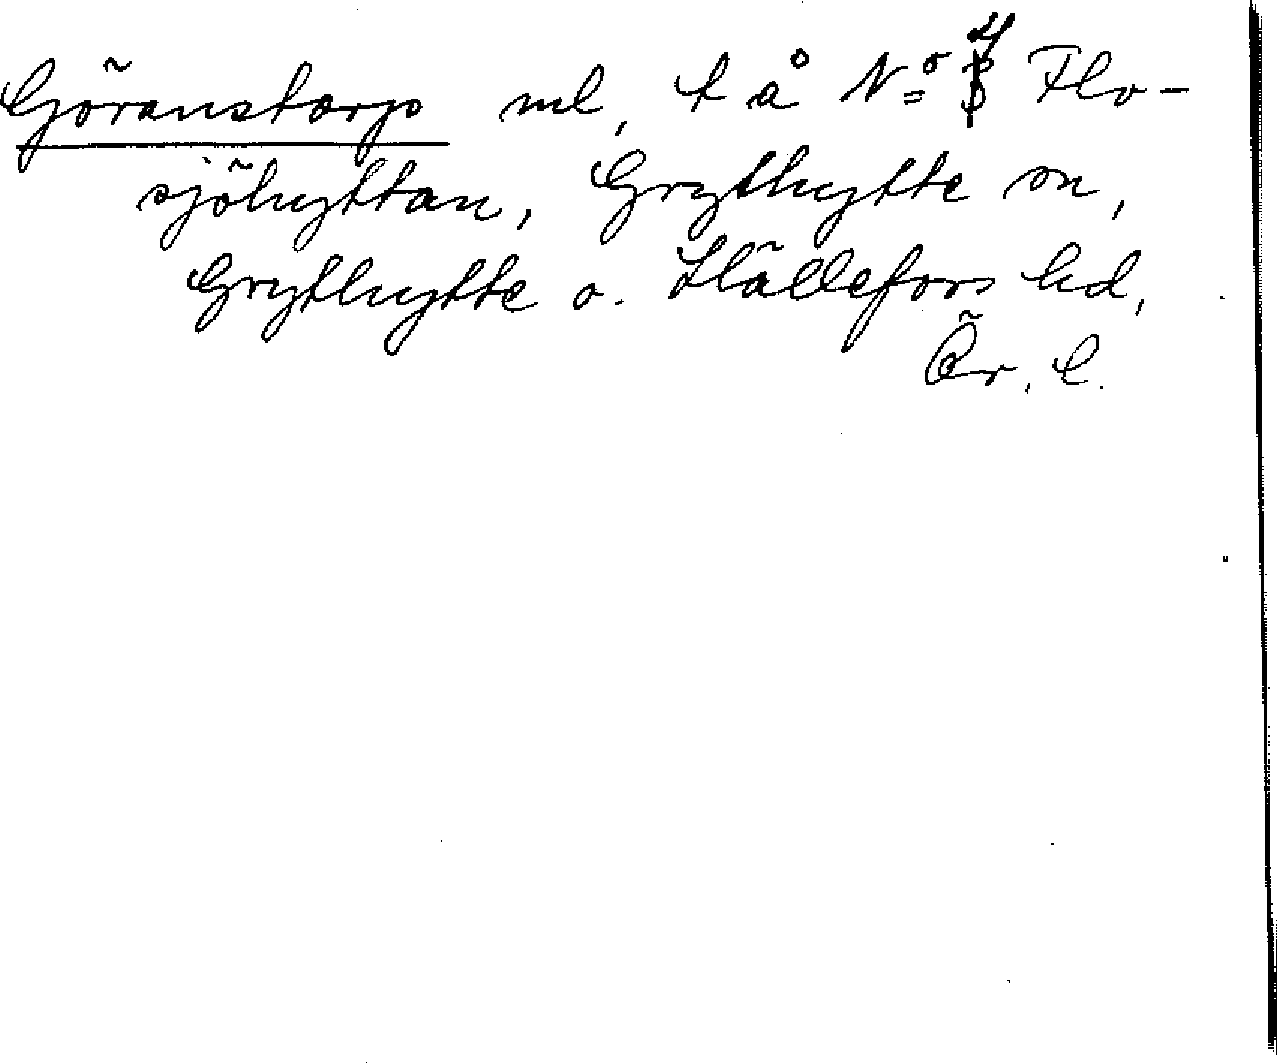 Göranstorp ml, t å Nº 4 Flo-
sjöhyttan, Grythytte sn,
Grythytte o. Hällefors hd,
Ör. l.